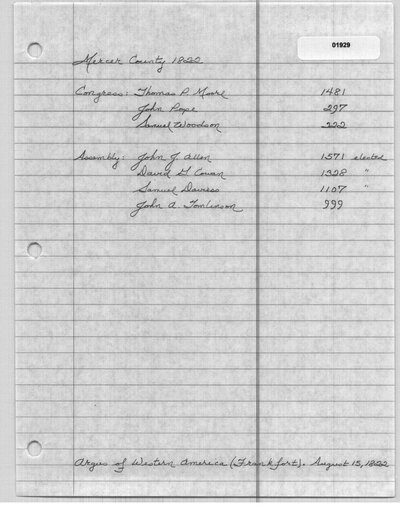 01929
Mercer County 1822
Congress: Thomas P. Moore 1481
John Pope 297
Samuel Woodson 222
Assembly: John J. Allen 1571 elected
David G Cowan 1328 "
Samuel Daviess 1107 "
John A. Tomlinson 999
Argus of Western America (Frankfort). August 15, 1822